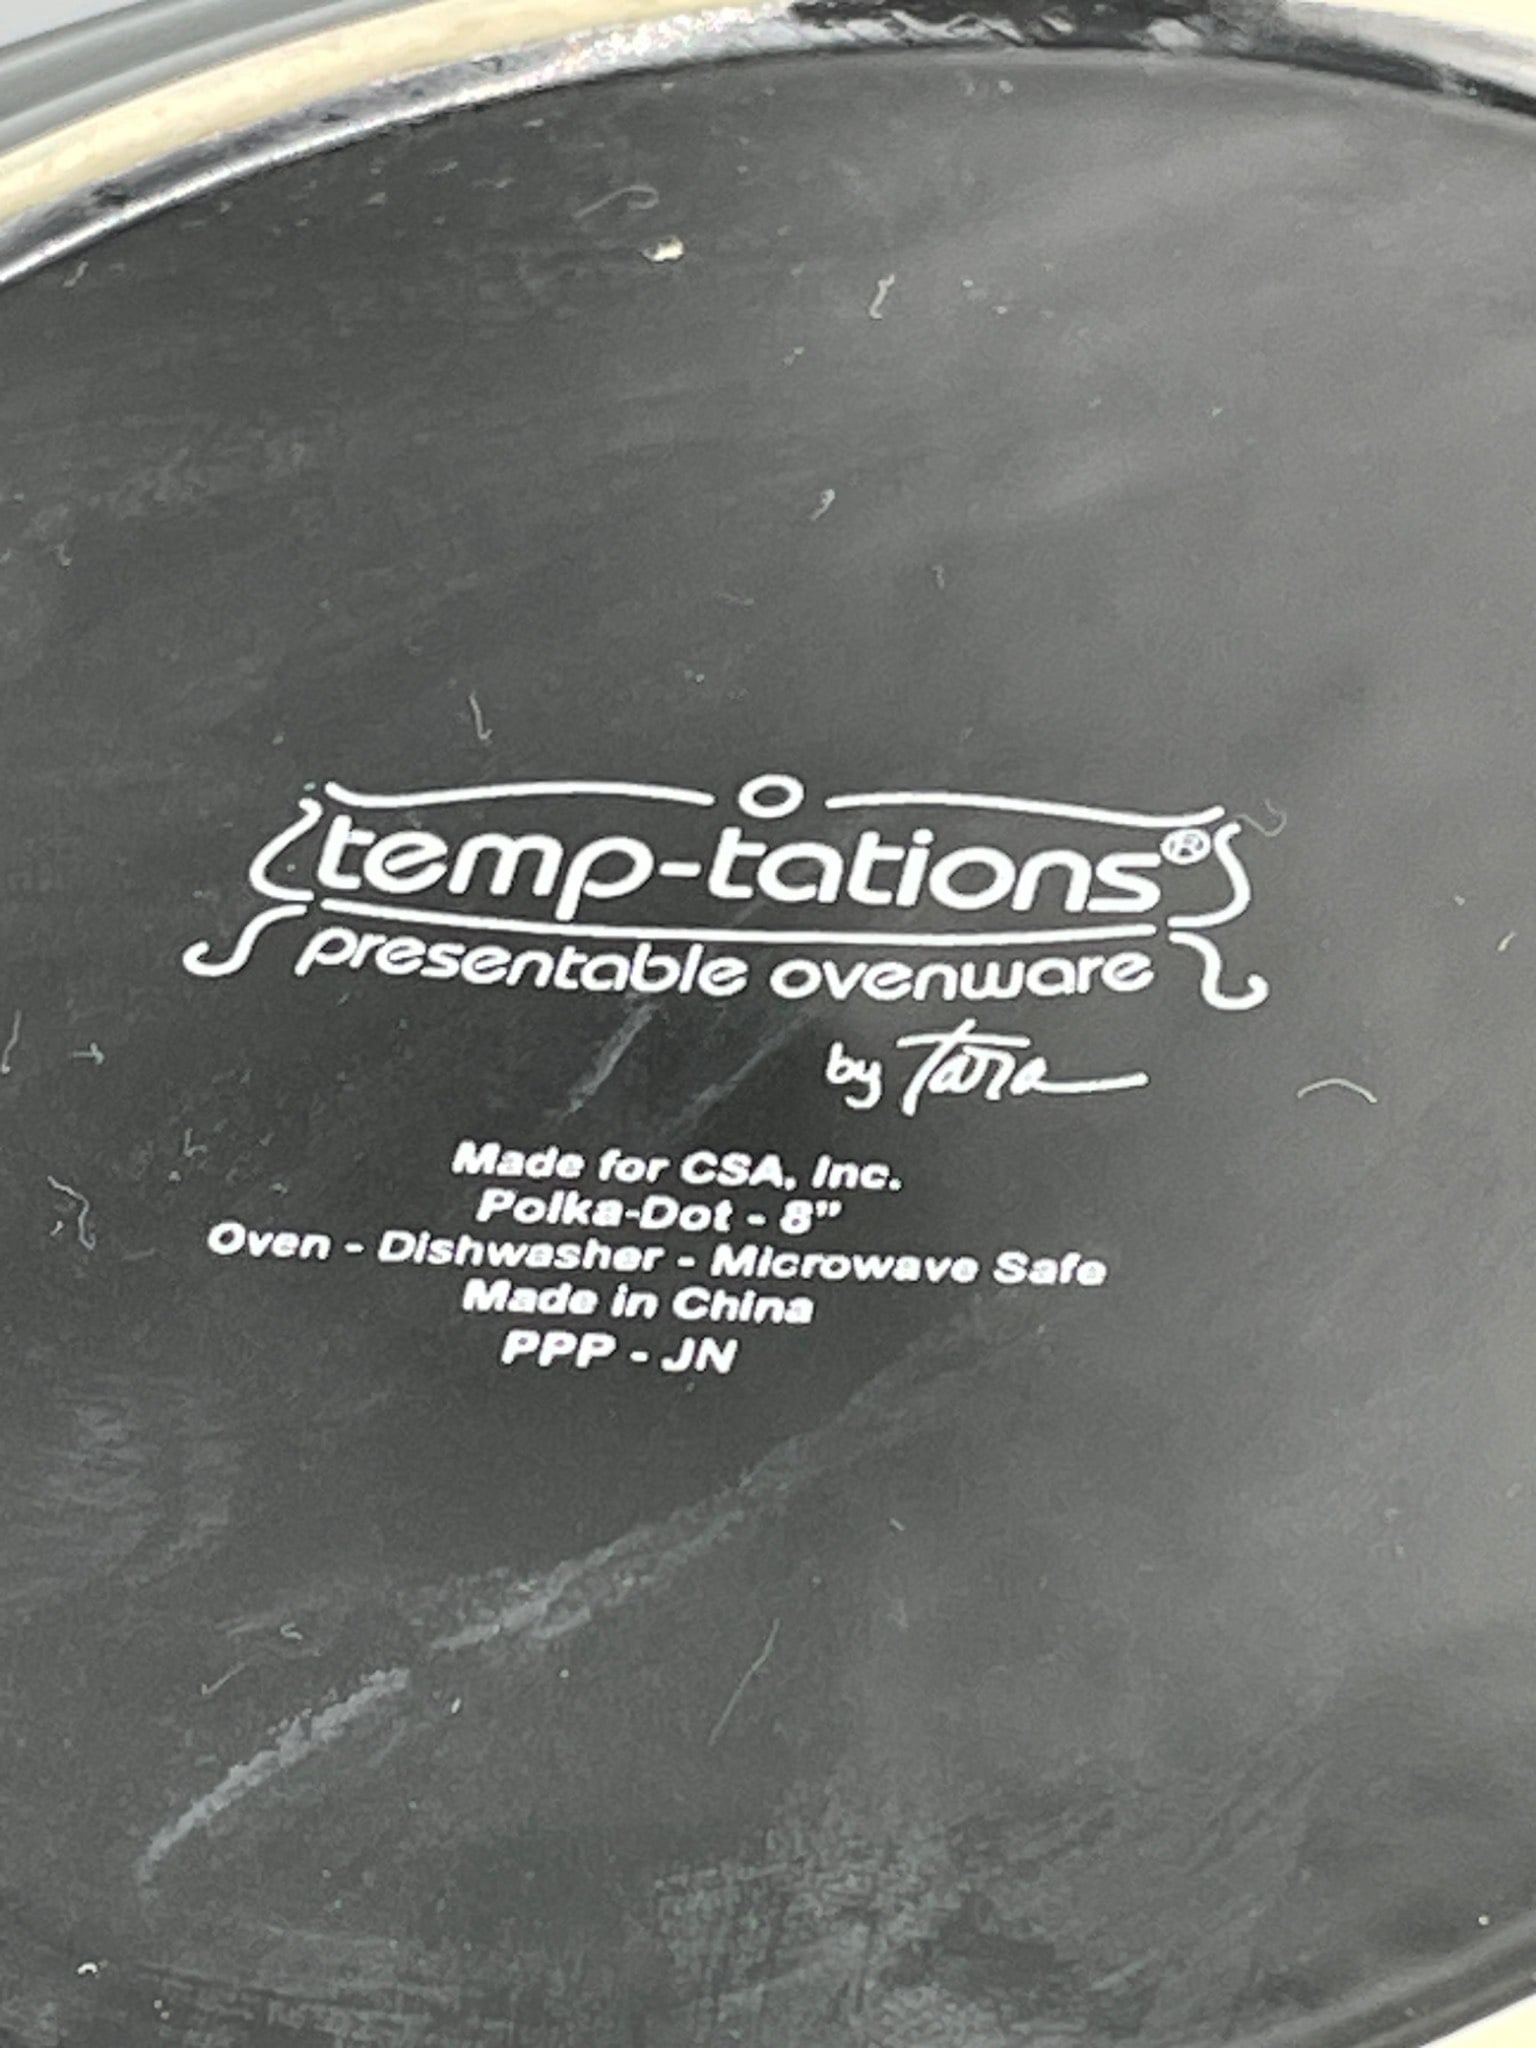 temp-tations®
presentable ovenware
by Tara
Made for CSA, Inc.
Polka-Dot - 8"
Oven - Dishwasher - Microwave Safe
Made in China
PPP - JN